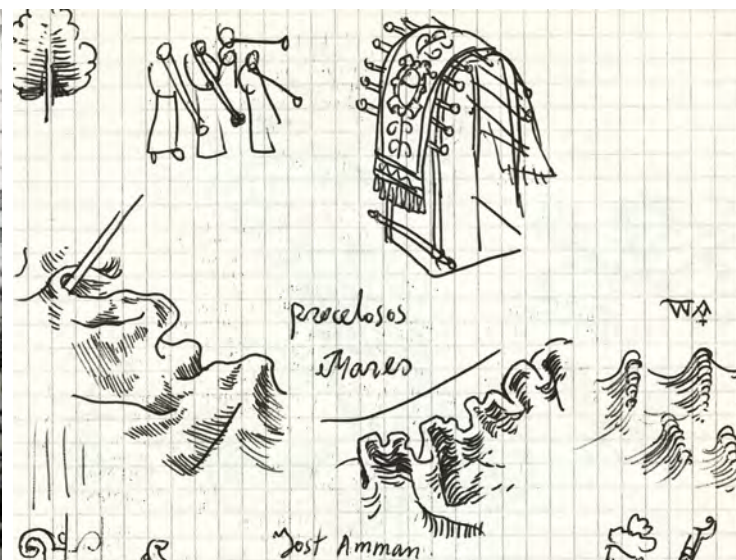 procelosos
Mares
Jost Amman